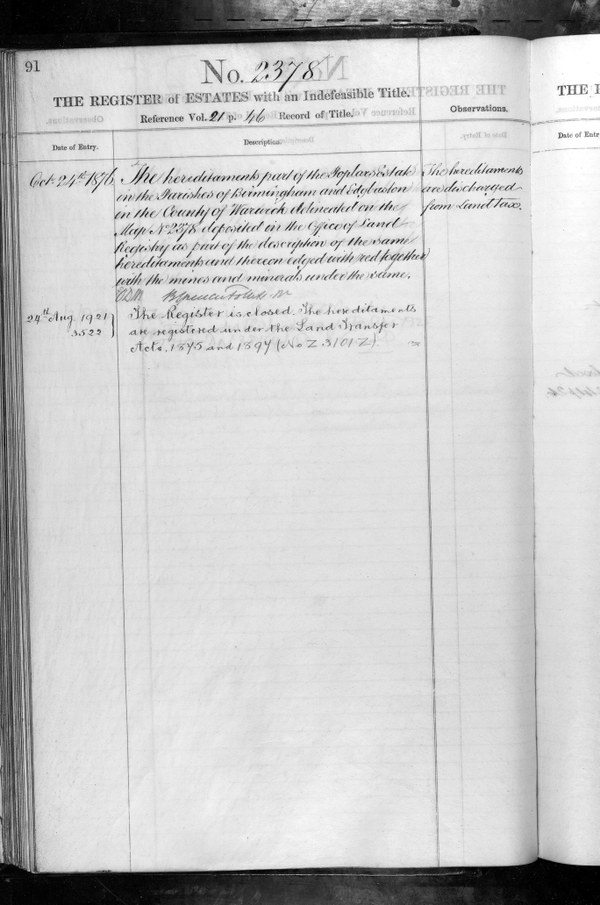 91
No. 2378
THE REGISTER of ESTATES with an Indefeasible Title.
Reference Vol. 21 p. 46 Record of Title.
Observations.
Date of Entry.
Description.
Oct 24th 1876
The hereditaments part of the Poplars Estate
in the Parishes of Birmingham and Edgbaston
in the County of Warwick delineated on the
Map No 2378 deposited in the Office of Land
Registry as part of the description of the same
hereditaments and thereon edged with red together
with the mines and minerals under the same.
The hereditaments
are discharged
from Land Tax.
24th Aug. 1921
3522
The Register is closed. The hereditaments
are registered under the Land Transfer
Acts, 1875 and 1897 (No Z 3101 Z).
THE R
Date of Entr